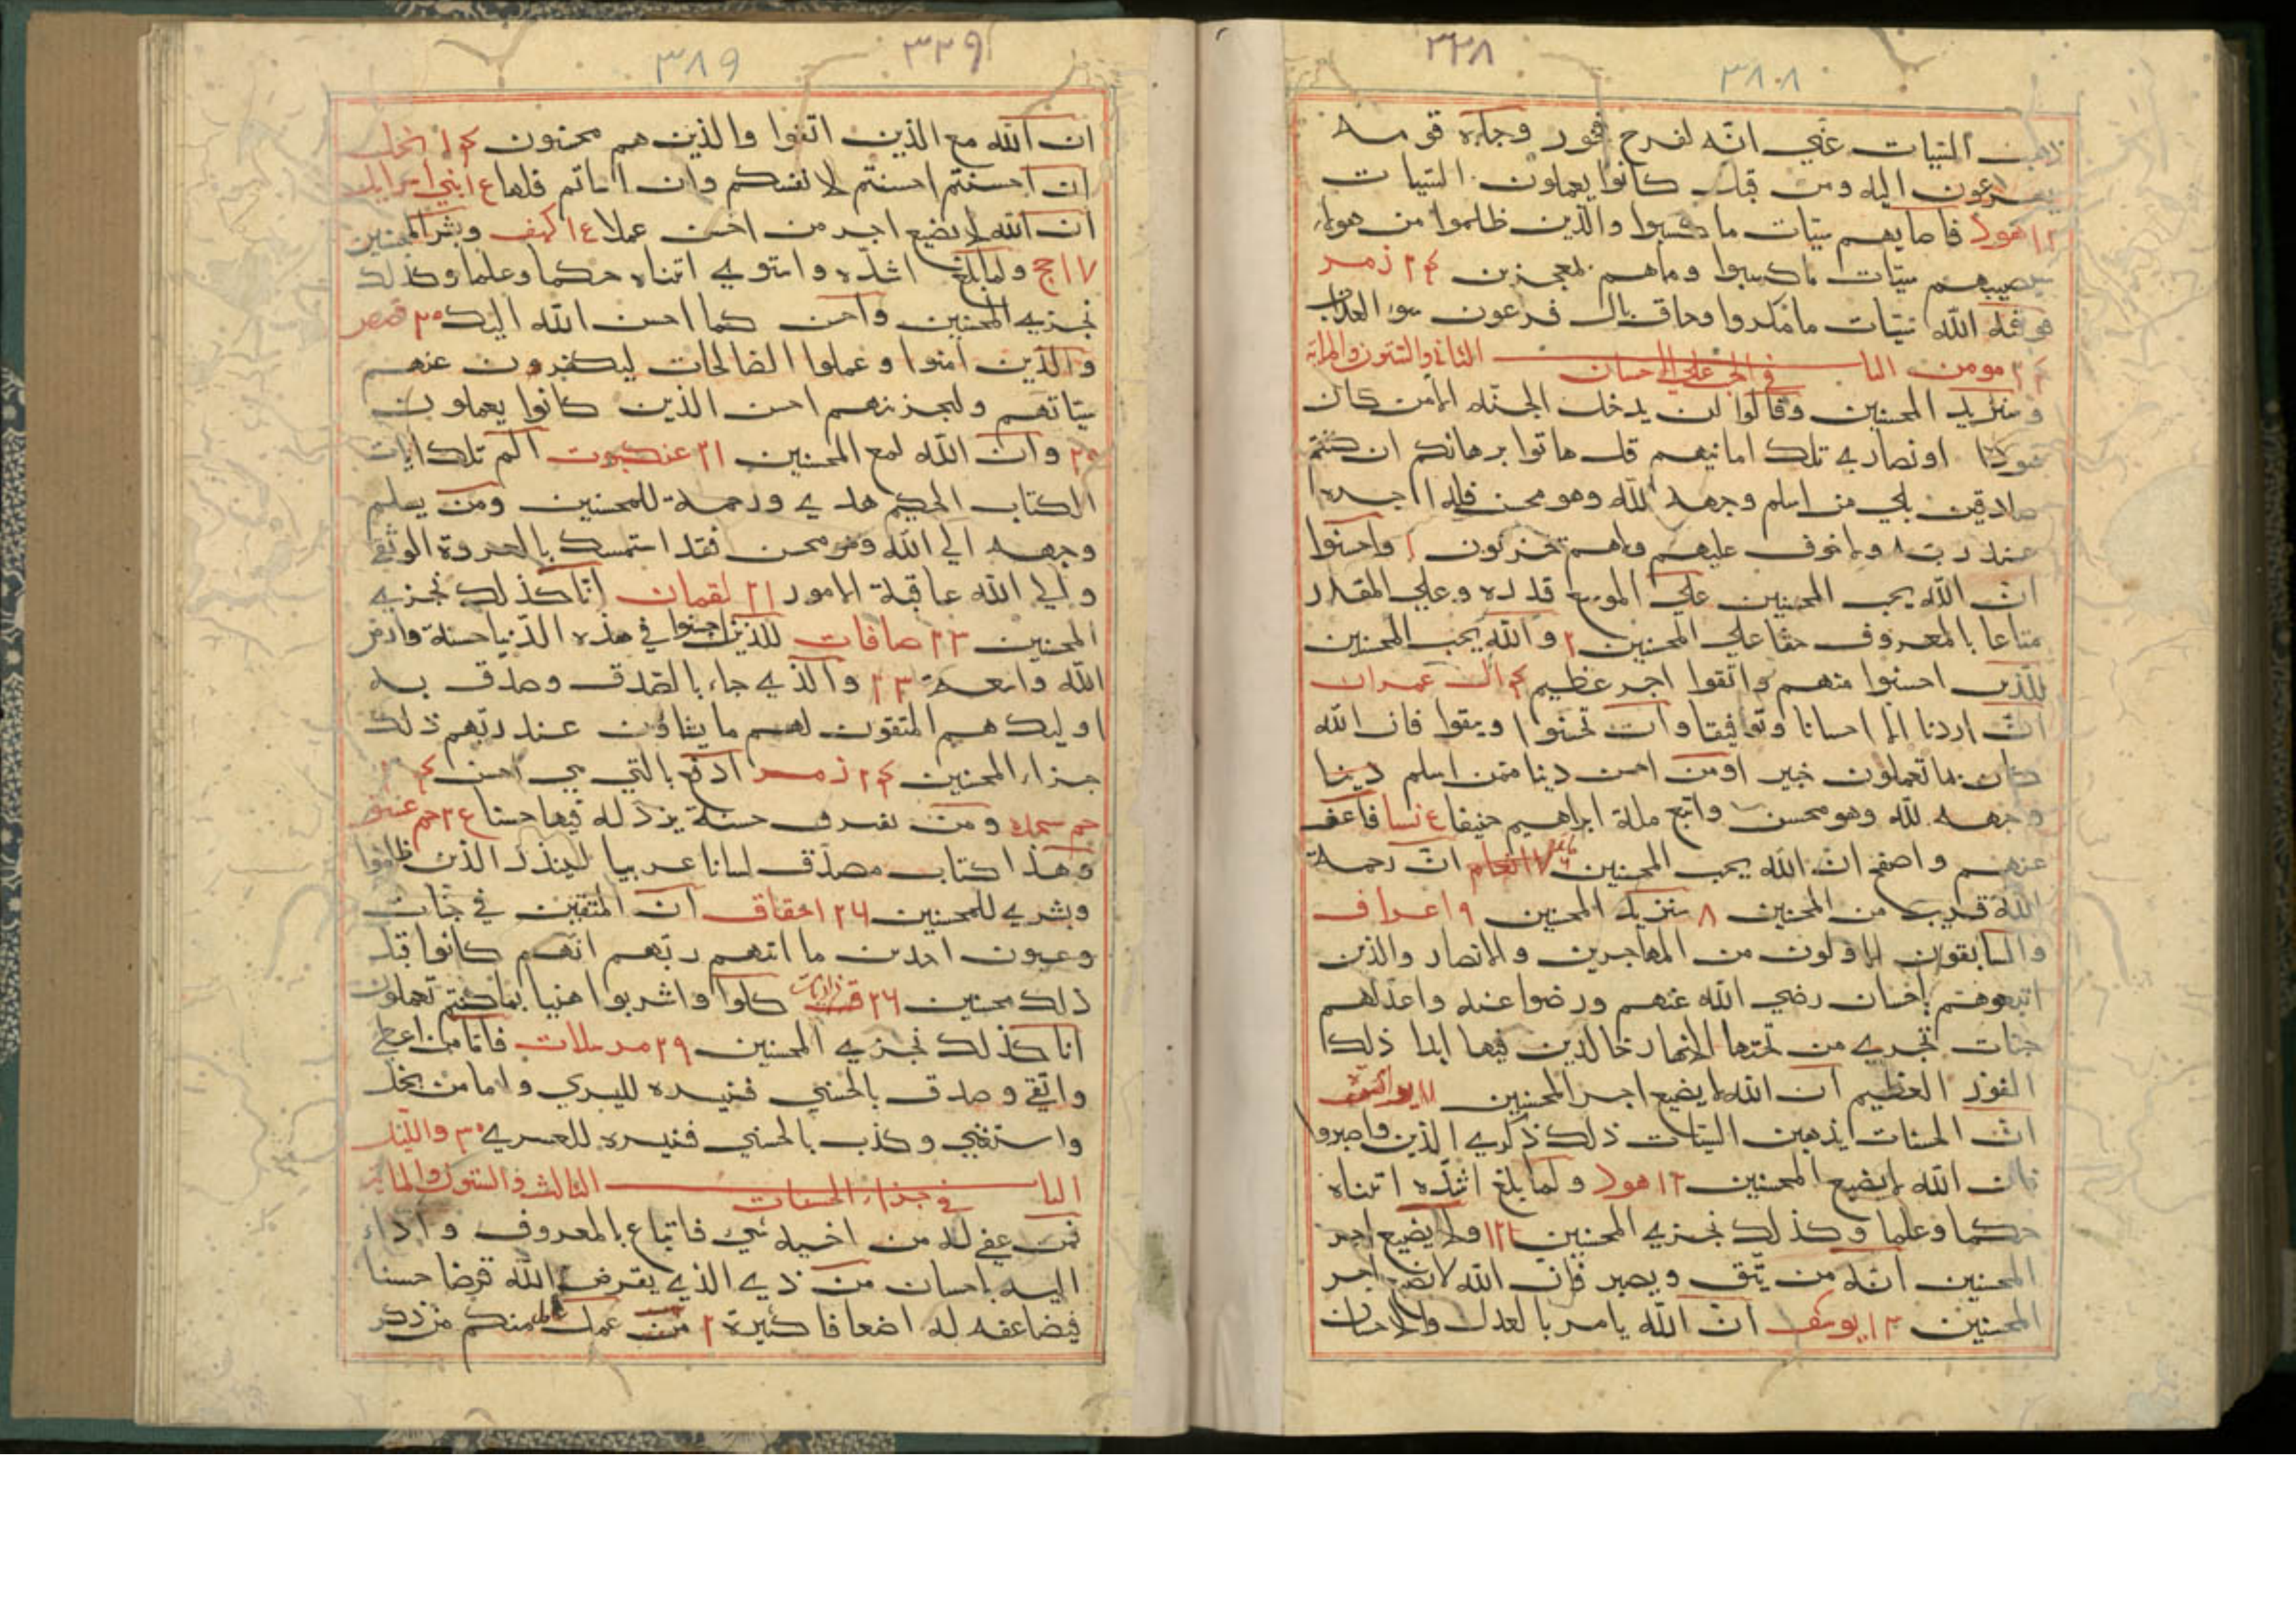 ٣٣٨
٣٨٨
ذهب السيات عني انه لفرح فخور وجاءه قومه
يهرعون اليه ومن قبل كانوا يعملون السيات
١٢ هود فاصابهم سيّات ما كسبوا والذين ظلموا من هولاء
سيصيبهم سيّات ما كسبوا وما هم بمعجزين ٢٤ زمر
فوقيه الله سيّات ما مكروا وحاق بال فرعون سوء العذاب
٢٤ مومن الباب الثاني والستون والماية
في الحث علي الاحسان
وسنزيد المحسنين وقالوا لن يدخل الجنه الا من كان
هودا او نصاري تلك امانيهم قل هاتوا برهانكم ان كنتم
صادقين بلي من اسلم وجهه لله وهو محسن فله اجره
عند ربه ولا خوف عليهم ولا هم يحزنون ١ واحسنوا
ان الله يحب المحسنين علي الموسع قدره وعلي المقدر
متاعا بالمعروف حقا علي المحسنين ٢ والله يحب المحسنين
للذين احسنوا منهم واتقوا اجر عظيم ٤ ال عمران
ان اردنا الا احسانا وتوفيقا وان تحسنوا وتتقوا فان الله
كان بما تعملون خبير او من احسن دينا ممن اسلم دينا
وجهه لله وهو محسن واتبع ملة ابراهيم حنيفا ع نسا فاعف
عنهم واصفح ان الله يحب المحسنين ٧ انعام ان رحمة
الله قريب من المحسنين ٨ سنزيد المحسنين ٩ اعراف
والسابقون الاولون من المهاجرين والانصار والذين
اتبعوهم باحسان رضي الله عنهم ورضوا عنه واعد لهم
جنات تجري من تحتها الانهار خالدين فيها ابدا ذلك
الفوز العظيم ان الله لا يضيع اجر المحسنين ١١
ان الحسنات يذهبن السيّات ذلك ذكري الذين واصبروا
فان الله لا يضيع المحسنين ١٢ هود ولما بلغ اشدّه اتيناه
حكما وعلما وكذلك نجزي المحسنين ١٢ ولا يضيع اجر
المحسنين انه من يتّق ويصبر فانّ الله لا يضيع اجر
المحسنين ١٣ يوسف ان الله يامر بالعدل والاحسان
٣٣٩
٣٨٩
ان الله مع الذين اتقوا والذين هم محسنون ١٤ نحل
ان احسنتم احسنتم لانفسكم وان اساتم فلها ع١ بني اسرايل
ان الله لا يضيع اجر من احسن عملا ع١ كهف وبشر المحسنين
١٧ حج ولما بلغ اشدّه واستوي اتيناه حكما وعلما وكذلك
نجزي المحسنين واحسن كما احسن الله اليك ٢٠ قصص
والذين امنوا وعملوا الصالحات ليكفرون عنهم
سيّاتهم ولنجزينهم احسن الذين كانوا يعملون
٢٠ وان الله لمع المحسنين ٢١ عنكبوت الم تلك ايات
الكتاب الحكيم هدي ورحمة للمحسنين ومن يسلم
وجهه الي الله وهو محسن فقد استمسك بالعروة الوثقي
والي الله عاقبة الامور ٢١ لقمان انا كذلك نجزي
المحسنين ٢٣ صافات للذين احسنوا في هذه الدنيا حسنة وارض
الله واسعة ٢٣ والذي جاء بالصدق وصدق به
اوليك هم المتقون لهم ما يشاؤن عند ربهم ذلك
جزاء المحسنين ٢٤ زمر ادفع بالتي هي احسن ٢٤
حم سجده ومن يقترف حسنة يزد له فيها حسنا ع٢ حم عسق
وهذا كتاب مصدّق لسانا عربيا لينذر الذين ظلموا
وبشري للمحسنين ٢٦ احقاف ان المتقين في جنات
وعيون اخذين ما اتيهم ربهم انهم كانوا قبل
ذلك محسنين ٢٦ ذاريات كلوا واشربوا هنيا بما كنتم تعملون
انا كذلك نجزي المحسنين ٢٩ مرسلات فاما من اعطي
واتقي وصدق بالحسني فسنيسره لليسري واما من بخل
واستغني وكذب بالحسني فسنيسره للعسري ٣٠ والليل
الباب الثالث والستون والماية
في جزاء الحسنات
فمن عفي له من اخيه شي فاتباع بالمعروف واداء
اليه باحسان من ذي الذي يقرض الله قرضا حسنا
فيضاعفه له اضعافا كثيرة ٢ عمل عامل منكم من ذكر